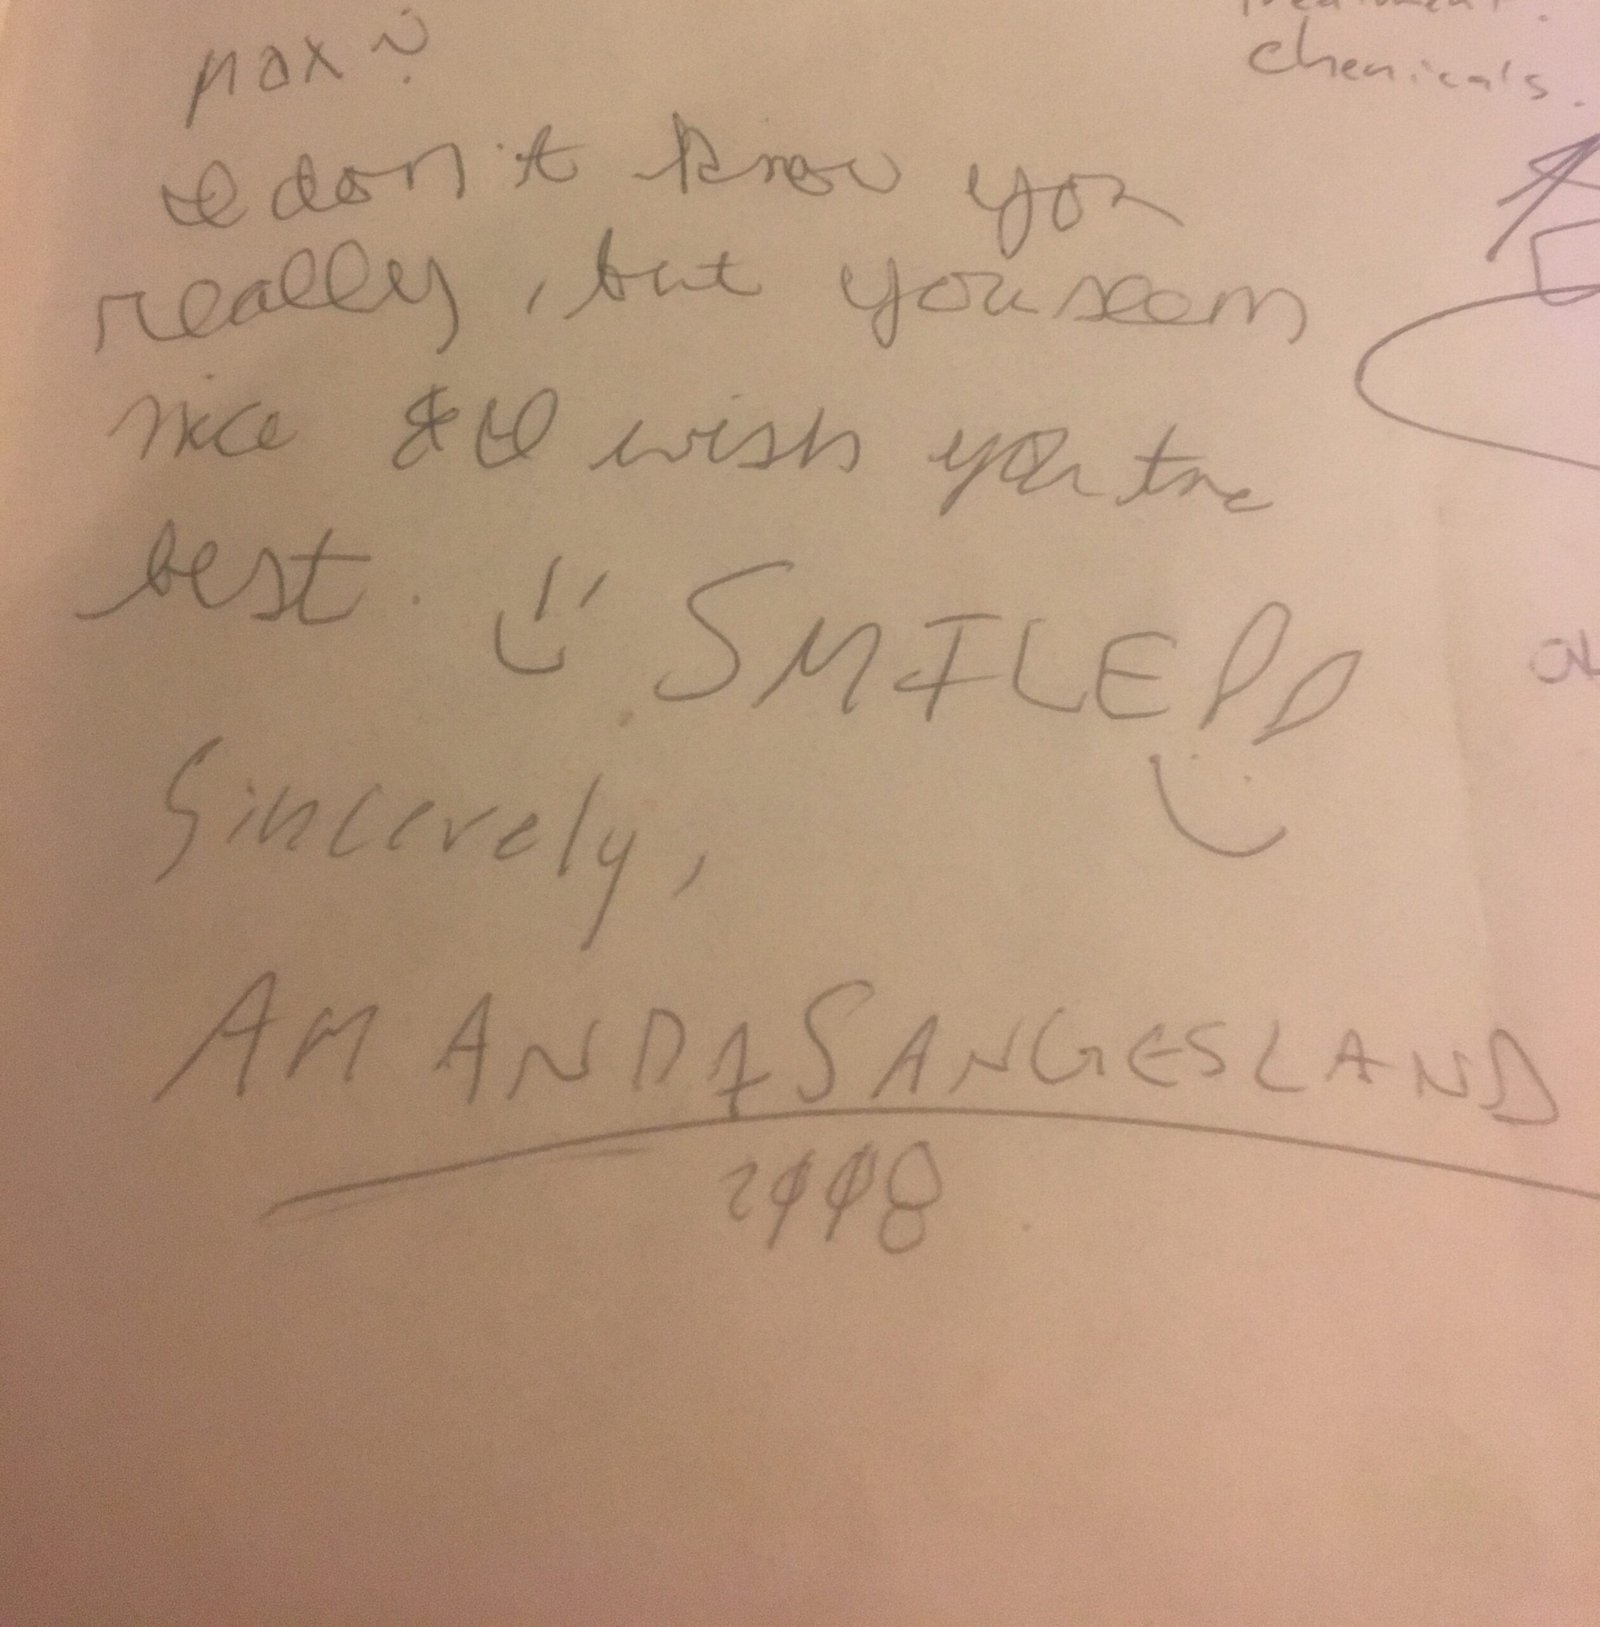 Max:
I don't know you
really, but you seem
nice & I wish you the
best. SMILE!!
Sincerely,
AMANDA SANGESLAND
2008
treatment.
chemicals.